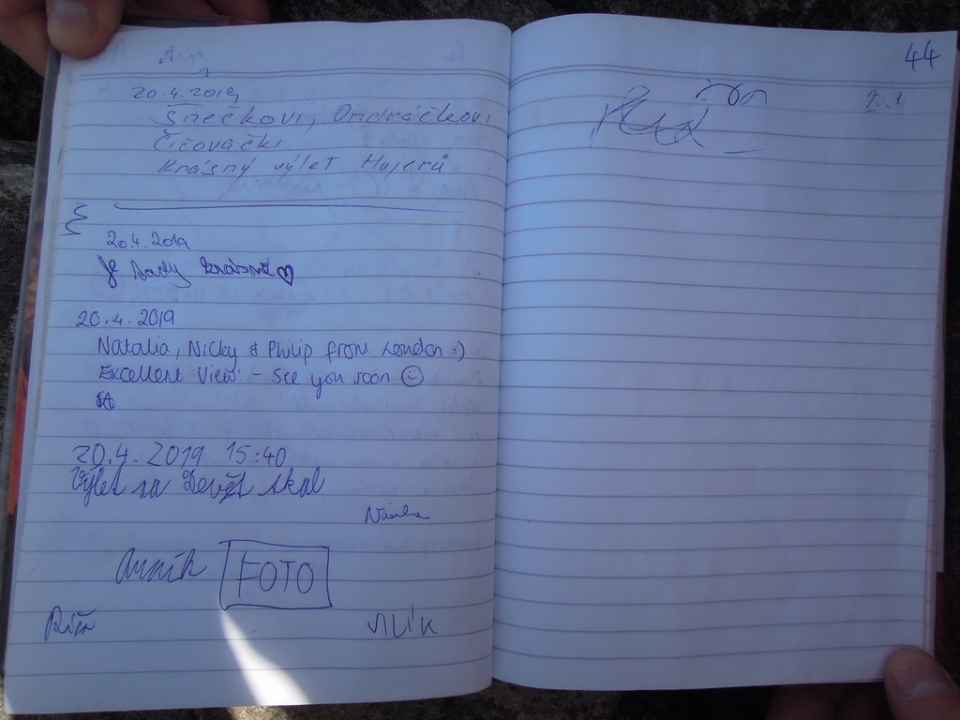 20.4.2019
Šnečkovi, Ondráčkovi
Čičováčki
Krásný výlet Hujerů
20.4.2019
Je tady krásně ♡
20.4.2019
Natalia, Nicky & Philip from London :)
Excellent View! - See you soon ☺
20.4.2019 15:40
Výlet na Devět skal
FOTO
44